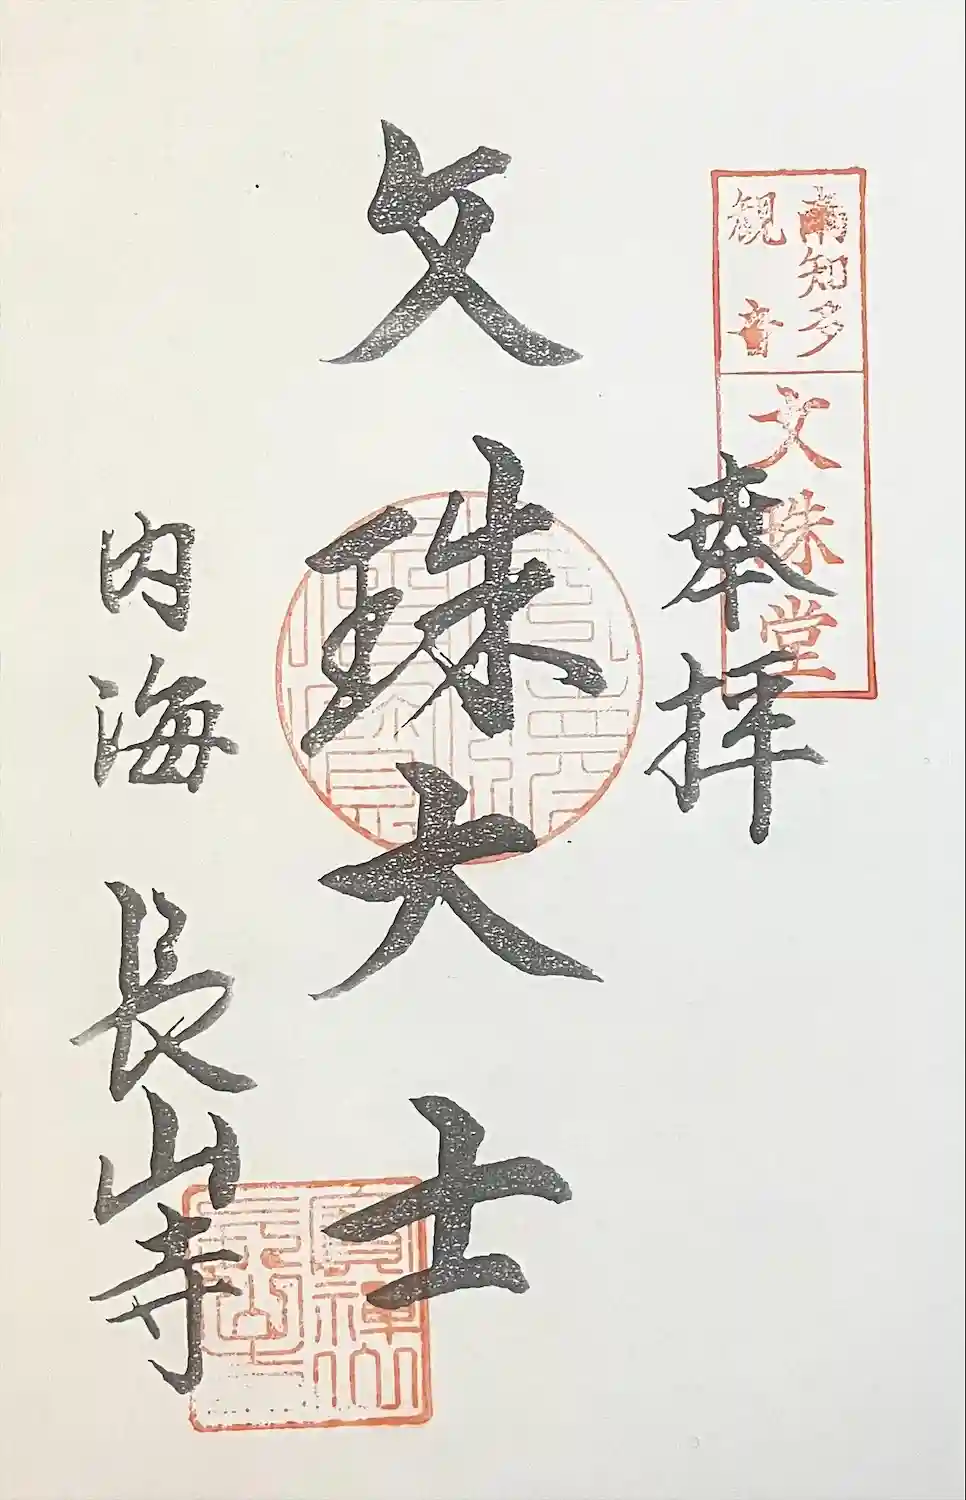 南知多
観音
文珠堂
奉拝
文珠大士
内海 長山寺